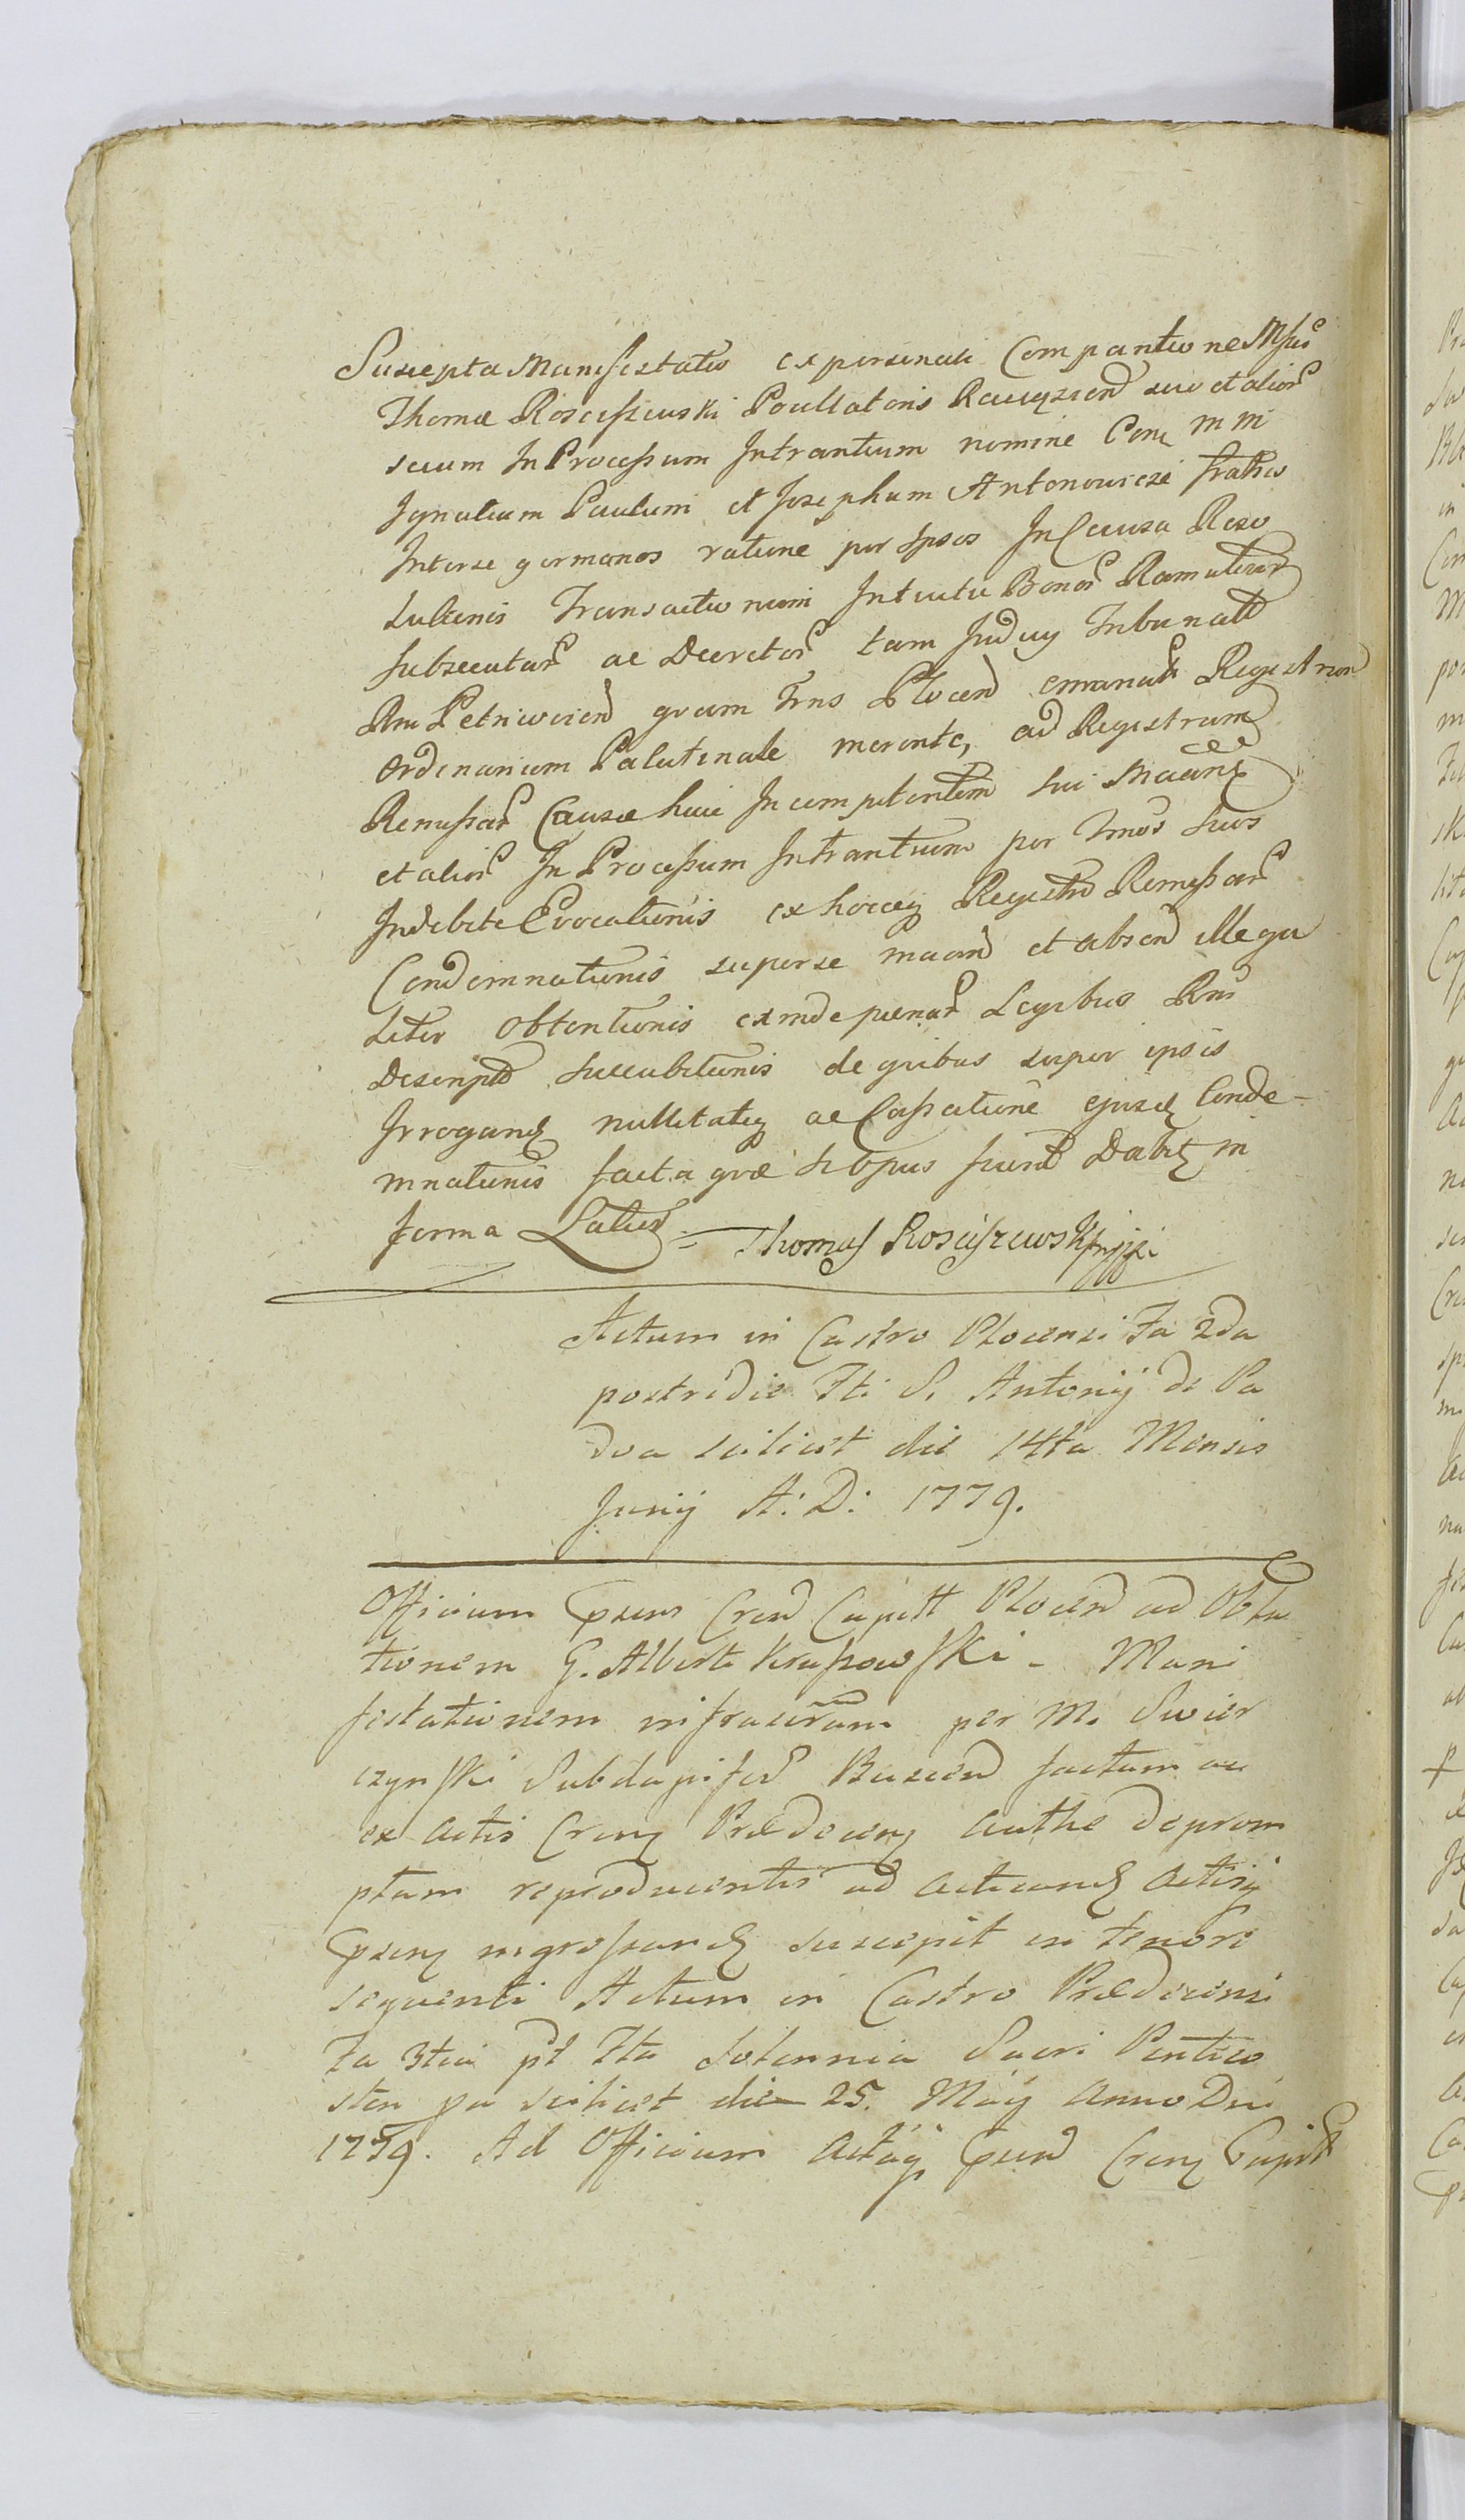 Suscepta Manifestatio ex personali Comparitione Msci
Thomæ Rosciszewski Pocillatoris Raciązien suo et alior
secum In Processum Intrantium nomine Cont M M
Ignatium Paulum et Josephum Antonowicze fratres
Interse germanos ratione per Ipsos In Causa Reso
lutionis Transactionum Intuitu Bonor Ramutow
subsecutar ac Decretor tam Judicy Tribunalit
Rni Petricovien quam Trns Plocen emanat Registrum
Ordinarium Palatinale merente, ad Registrum
Remissar Causæ huic Incompetentem sui Maane
et alior In Processum Intrantium per Tmos suos
Indebite Evocationis ex hocceq Registro Remissar
Condemnationis super se maan et absen illega
liter Obtentionis exinde pænar Legibus Rni
Descript succubitionis de quibus super ipsis
Irrogand nullitateq ac Cassatione ejusd Conde-
mnationis facta quæ si Opus fuerit Dabit in
forma Latiori = Thomas Rosciszewski mpp
Actum in Castro Plocensi Fa 2da
postridie Fti S. Antonij de Pa
dua scilicet die 14ta Mensis
Junij A: D: 1779.
Officium Præsens Cren Capitt Plocen ad Obla
tionem G. Alberti Krassowski - Mani
festationem infrascriptam per M. Swier
czynski Subdapifer Buscen factam ac
ex actis Cren Prædecen authe deprom
ptam reproducentis ad acticand actisq
Præsen ingrossand suscepit in tenore
sequenti Actum in Castro Prædecensi
Fa 3tia pt Fta Solennia Sacri Penteco
sten pa scilicet die 25. Maij Anno Dni
1779. Ad Officium Actaq Præsen Cren Capitt